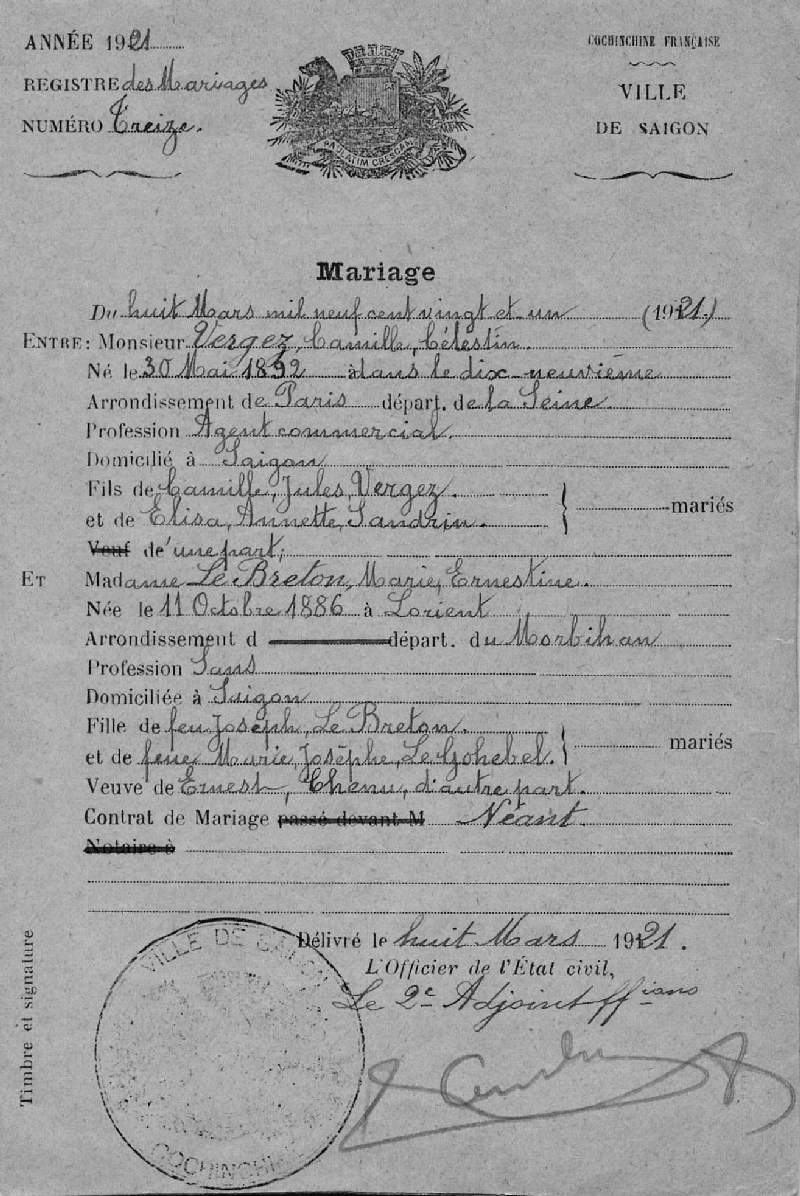 ANNÉE 1921
REGISTRE des Mariages
NUMÉRO Treize.
PAULATIM CRESCAM
COCHINCHINE FRANÇAISE
VILLE
DE SAIGON
Mariage
Du huit Mars mil neuf cent vingt et un (1921)
ENTRE: Monsieur Vergez, Camille, Célestin.
Né le 30 Mai 1892 à dans le dix-neuvième
Arrondissement de Paris départ. de la Seine.
Profession Agent commercial.
Domicilié à Saigon
Fils de Camille, Jules, Vergez.
et de Elisa, Annette, Sandrin. mariés
Veuf de d'une part;
ET Madame Le Breton, Marie, Ernestine.
Née le 11 Octobre 1886 à Lorient
Arrondissement d départ. du Morbihan
Profession Sans
Domiciliée à Saigon
Fille de feu Joseph, Le Breton.
et de feue Marie, Josèphe, Le Gohebel. mariés
Veuve de Ernest, Chenu, d'autre part.
Contrat de Mariage passé devant M Néant.
Notaire à
Délivré le huit Mars 1921.
L'Officier de l'État civil,
Le 2e Adjoint ff ians
Timbre et signature
VILLE DE SAIGON
COCHINCHINE